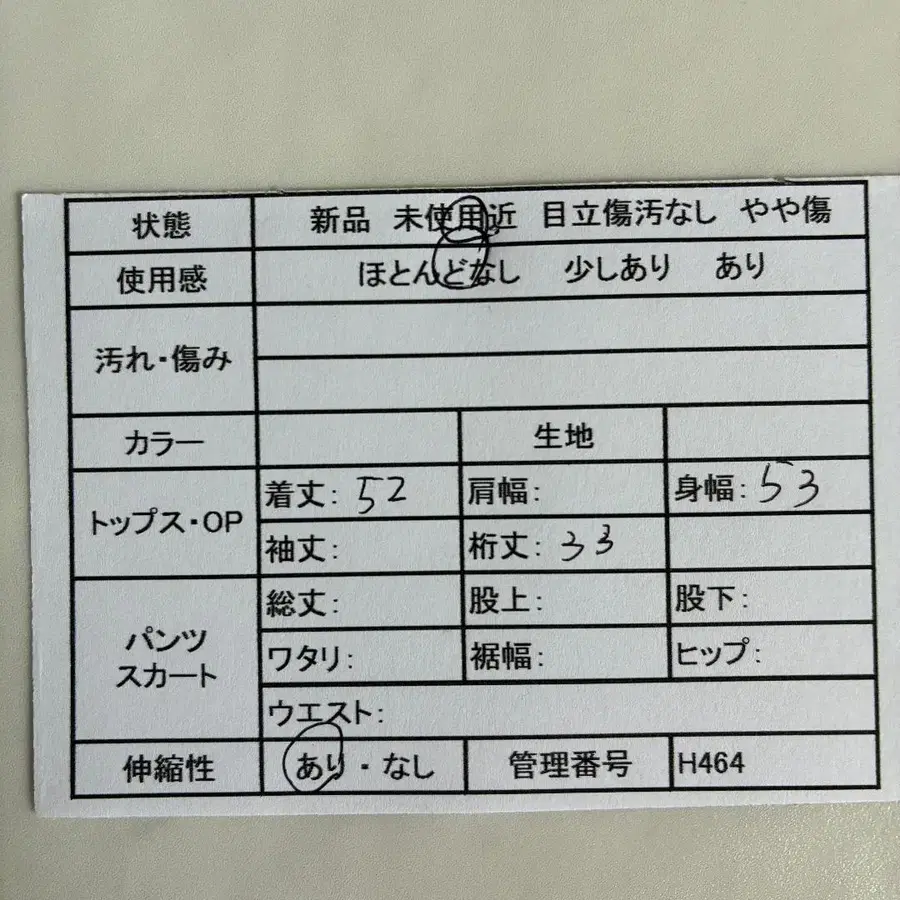 状態 新品 未使用近 目立傷汚なし やや傷
使用感 ほとんどなし 少しあり あり
汚れ・傷み
カラー 生地
トップス・OP
着丈: 52 肩幅: 身幅: 53
袖丈: 裄丈: 33
パンツ
スカート
総丈: 股上: 股下:
ワタリ: 裾幅: ヒップ:
ウエスト:
伸縮性 あり・なし 管理番号 H464